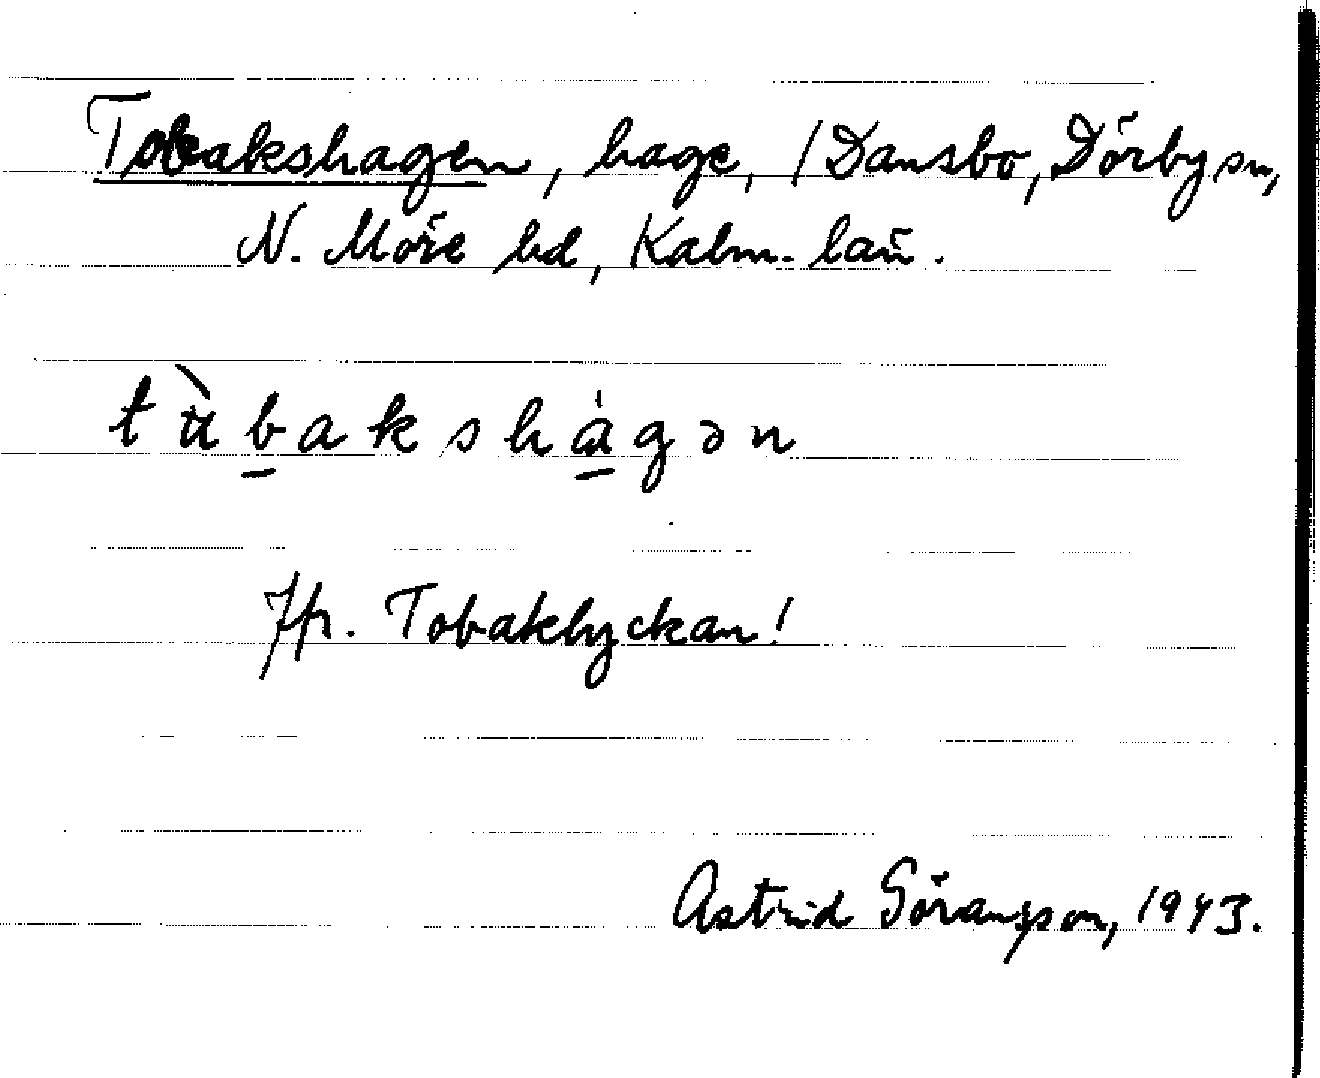 Tobakshagen, hage, / Dansbo, Dörby sn,
N. Möre hd, Kalm. län.
tùbakshàgən
Jfr. Tobaklyckan!
Astrid Göransson, 1943.